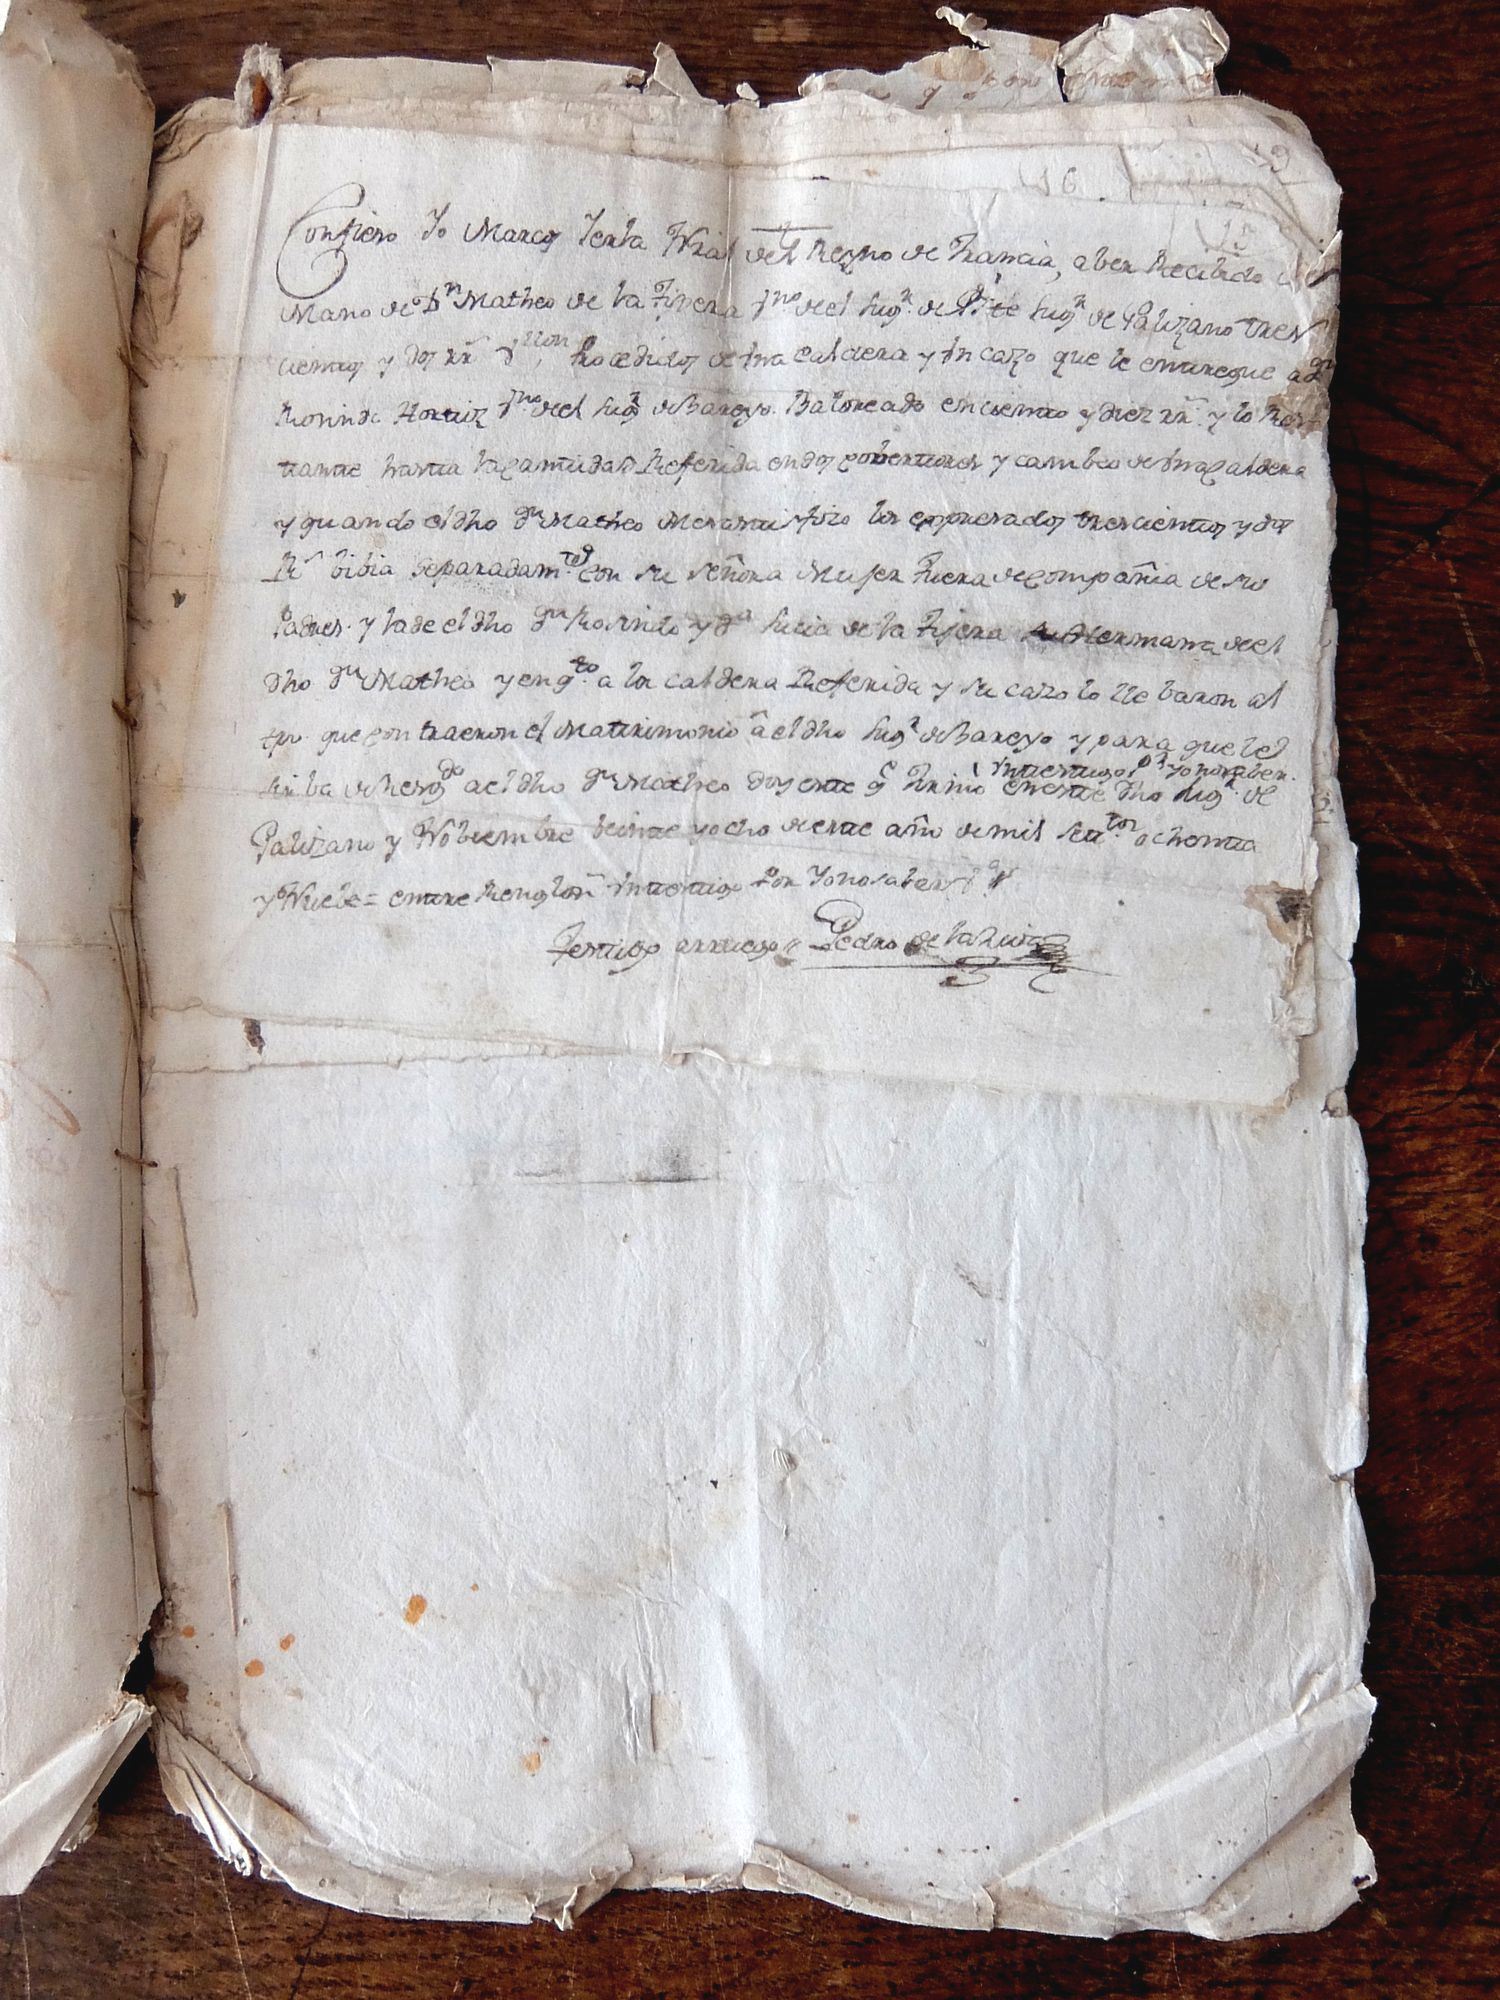 16
19
15
Confieso Yo Marcos Yerla Nral del Reyno de Francia, aber Recibido de
Mano de Dn Matheo de la Tijera Vno de el lugr de Dte lugr de Palizano tres
cientos y dos rrs Vllon, Procedidos de Vna caldera y Vn cazo que le entregue a dn
Rosindo Hortiz Vno de el lugr de Bareyo Baloreado en ciento y diez rrs y lo Res
tante hasta la cantidad Referida en dos coberttores y cambeo de Vna caldera
y quando el dho dn Matheo Me satisfizo los expresados trescientos y dos
Rs bibia separadamte con su señora Mujer fuera de compañia de sus
Padres y la de el dho dn Rosindo y da lucia de la Tijera su Hermana de el
dho dn Matheo y en qto a la caldera Referida y su cazo lo lle baron al
tpo que contraeron el Matrimonio a el dho lugr de Bareyo y para que le
sirba de Resgdo a el dho dn Matheo doy este q firmo Vn testigo Pr yo no saber
en este dho lugr de
Palizano y Nobiembre beinte y ocho de este año de mil settos ochenta
y Nuebe = entre Renglons Vn testigo Por Yo no saber Ve
Testigo arruego Pedro de la Ruiz